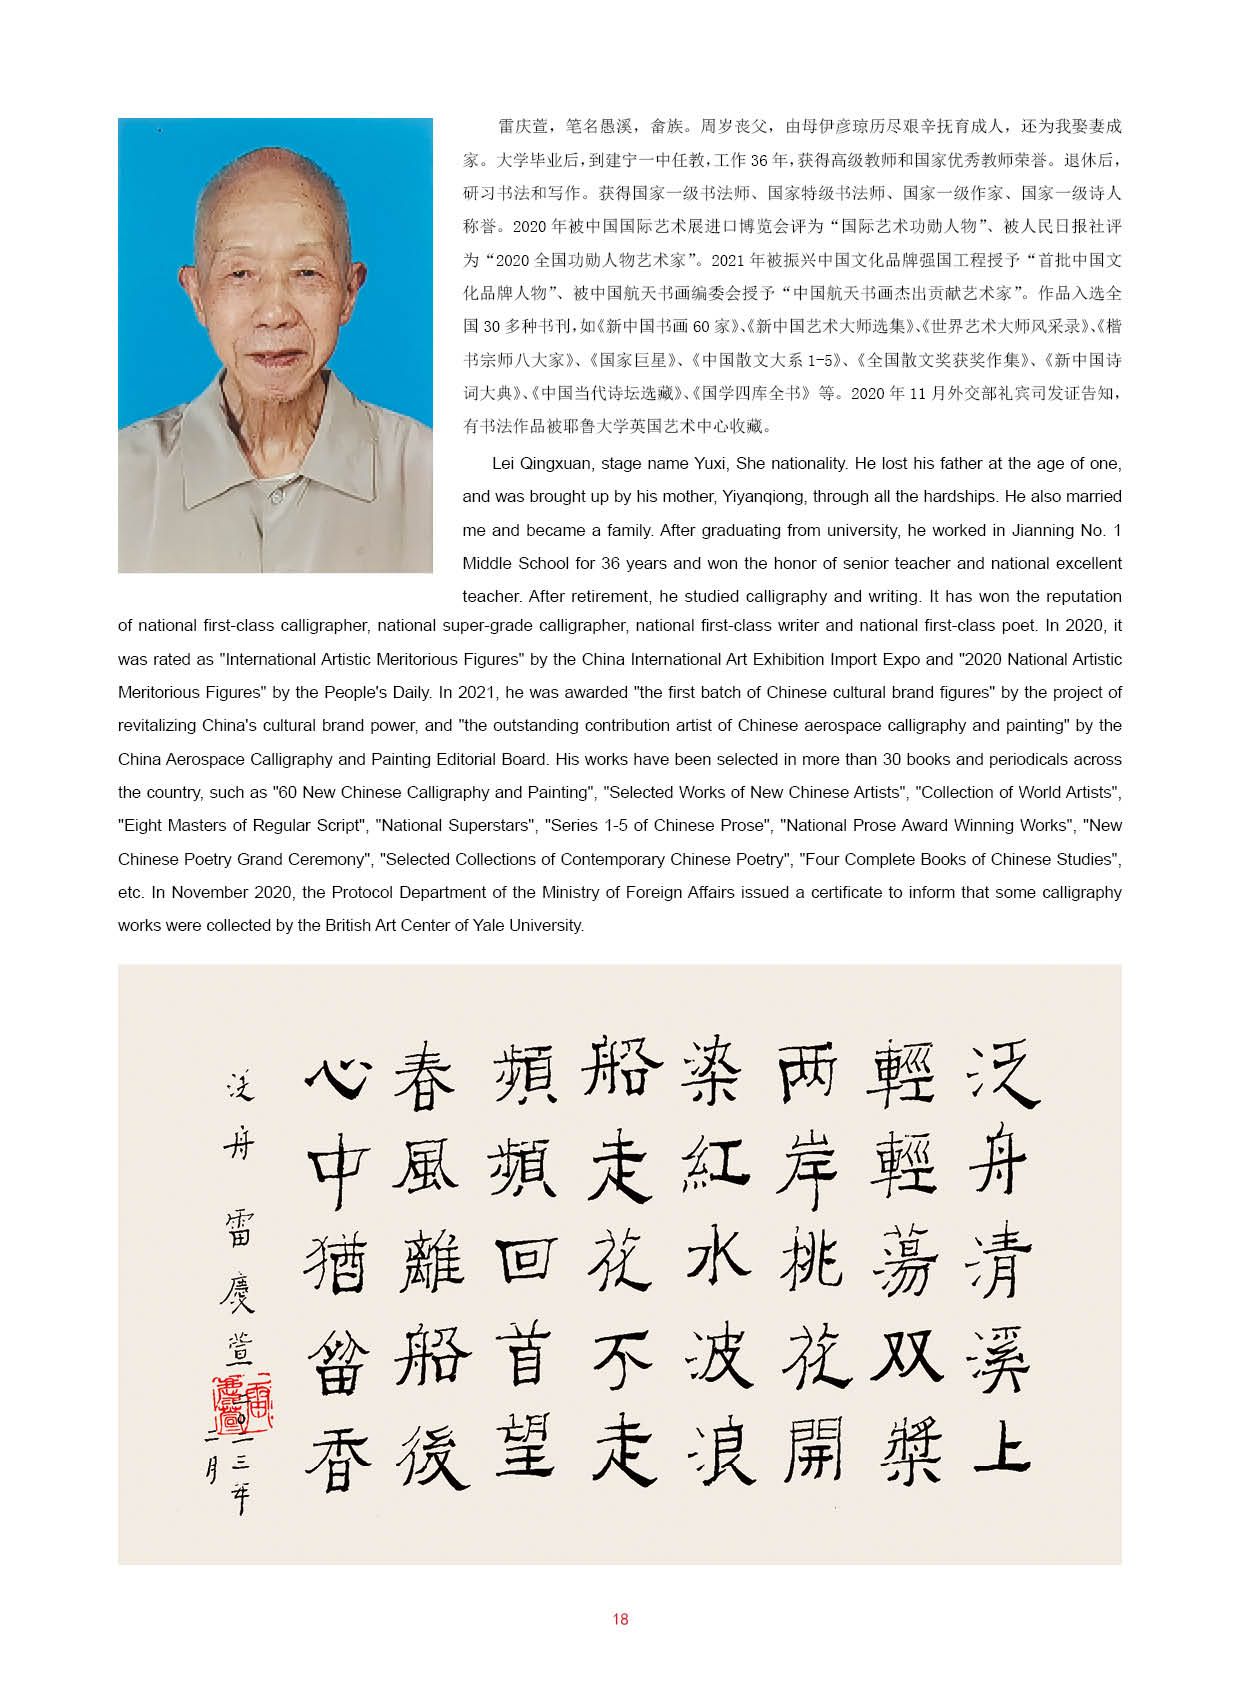 雷庆萱，笔名愚溪，畲族。周岁丧父，由母伊彦琼历尽艰辛抚育成人，还为我娶妻成
家。大学毕业后，到建宁一中任教，工作 36 年，获得高级教师和国家优秀教师荣誉。退休后，
研习书法和写作。获得国家一级书法师、国家特级书法师、国家一级作家、国家一级诗人
称誉。2020 年被中国国际艺术展进口博览会评为“国际艺术功勋人物”、被人民日报社评
为“2020 全国功勋人物艺术家”。2021 年被振兴中国文化品牌强国工程授予“首批中国文
化品牌人物”、被中国航天书画编委会授予“中国航天书画杰出贡献艺术家”。作品入选全
国 30 多种书刊，如《新中国书画 60 家》、《新中国艺术大师选集》、《世界艺术大师风采录》、《楷
书宗师八大家》、《国家巨星》、《中国散文大系 1-5》、《全国散文奖获奖作集》、《新中国诗
词大典》、《中国当代诗坛选藏》、《国学四库全书》等。2020 年 11 月外交部礼宾司发证告知，
有书法作品被耶鲁大学英国艺术中心收藏。
Lei Qingxuan, stage name Yuxi, She nationality. He lost his father at the age of one,
and was brought up by his mother, Yiyanqiong, through all the hardships. He also married
me and became a family. After graduating from university, he worked in Jianning No. 1
Middle School for 36 years and won the honor of senior teacher and national excellent
teacher. After retirement, he studied calligraphy and writing. It has won the reputation
of national first-class calligrapher, national super-grade calligrapher, national first-class writer and national first-class poet. In 2020, it
was rated as "International Artistic Meritorious Figures" by the China International Art Exhibition Import Expo and "2020 National Artistic
Meritorious Figures" by the People's Daily. In 2021, he was awarded "the first batch of Chinese cultural brand figures" by the project of
revitalizing China's cultural brand power, and "the outstanding contribution artist of Chinese aerospace calligraphy and painting" by the
China Aerospace Calligraphy and Painting Editorial Board. His works have been selected in more than 30 books and periodicals across
the country, such as "60 New Chinese Calligraphy and Painting", "Selected Works of New Chinese Artists", "Collection of World Artists",
"Eight Masters of Regular Script", "National Superstars", "Series 1-5 of Chinese Prose", "National Prose Award Winning Works", "New
Chinese Poetry Grand Ceremony", "Selected Collections of Contemporary Chinese Poetry", "Four Complete Books of Chinese Studies",
etc. In November 2020, the Protocol Department of the Ministry of Foreign Affairs issued a certificate to inform that some calligraphy
works were collected by the British Art Center of Yale University.
泛舟清溪上
輕輕蕩双槳
两岸桃花開
染紅水波浪
船走花不走
頻頻回首望
春風離船後
心中猶留香
泛舟 雷慶萱 二〇一三年
二月
18